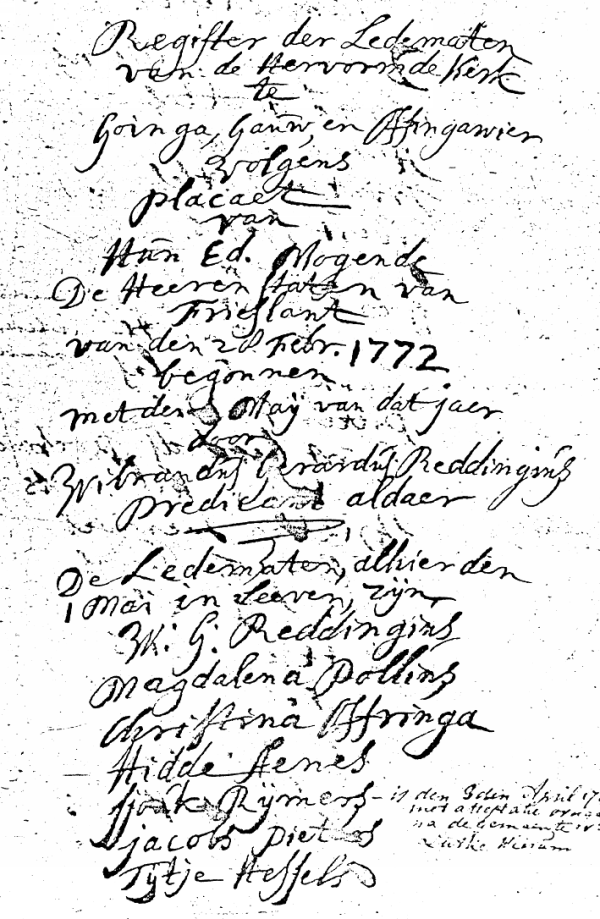 Register der Ledematen
van de Hervormde Kerk
te
Goinga, Gauw, en Offingawier
volgens
placaet
van
Haar Ed. Mogende
De Heeren staten van
Frieslant
van den 28 Febr. 1772
begonnen
met den Maÿ van dat jaer
door
Wibrandus Gerardus Reddingius
predicant aldaer
De Ledematen, alhier den
1 Mai in Leeven, zÿn
W: G: Reddingius
Magdalena Pollius
Christina Offringa
Hidde Fenes
Sjouk Rÿmers - is den 3den April
met attestatie
na de Gemeente
jacobs Pieters
Tÿtje Hessels